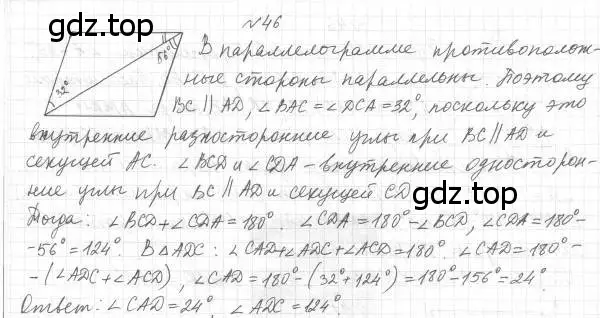 №46
32°
56°
В параллелограмме противополож-
ные стороны параллельны. Поэтому
BC || AD, ∠BAC = ∠DCA = 32°, поскольку это
внутренние разносторонние углы при BC || AD и
секущей AC. ∠BCD и ∠CDA - внутренние односторон-
ние углы при BC || AD и секущей CD
Тогда: ∠BCD + ∠CDA = 180°. ∠CDA = 180° - ∠BCD, ∠CDA = 180° -
- 56° = 124°. В △ADC: ∠CAD + ∠ADC + ∠ACD = 180°. ∠CAD = 180° -
- (∠ADC + ∠ACD), ∠CAD = 180° - (32° + 124°) = 180° - 156° = 24°.
Ответ: ∠CAD = 24°, ∠ADC = 124°.
gdz.top
gdz.top
gdz.top